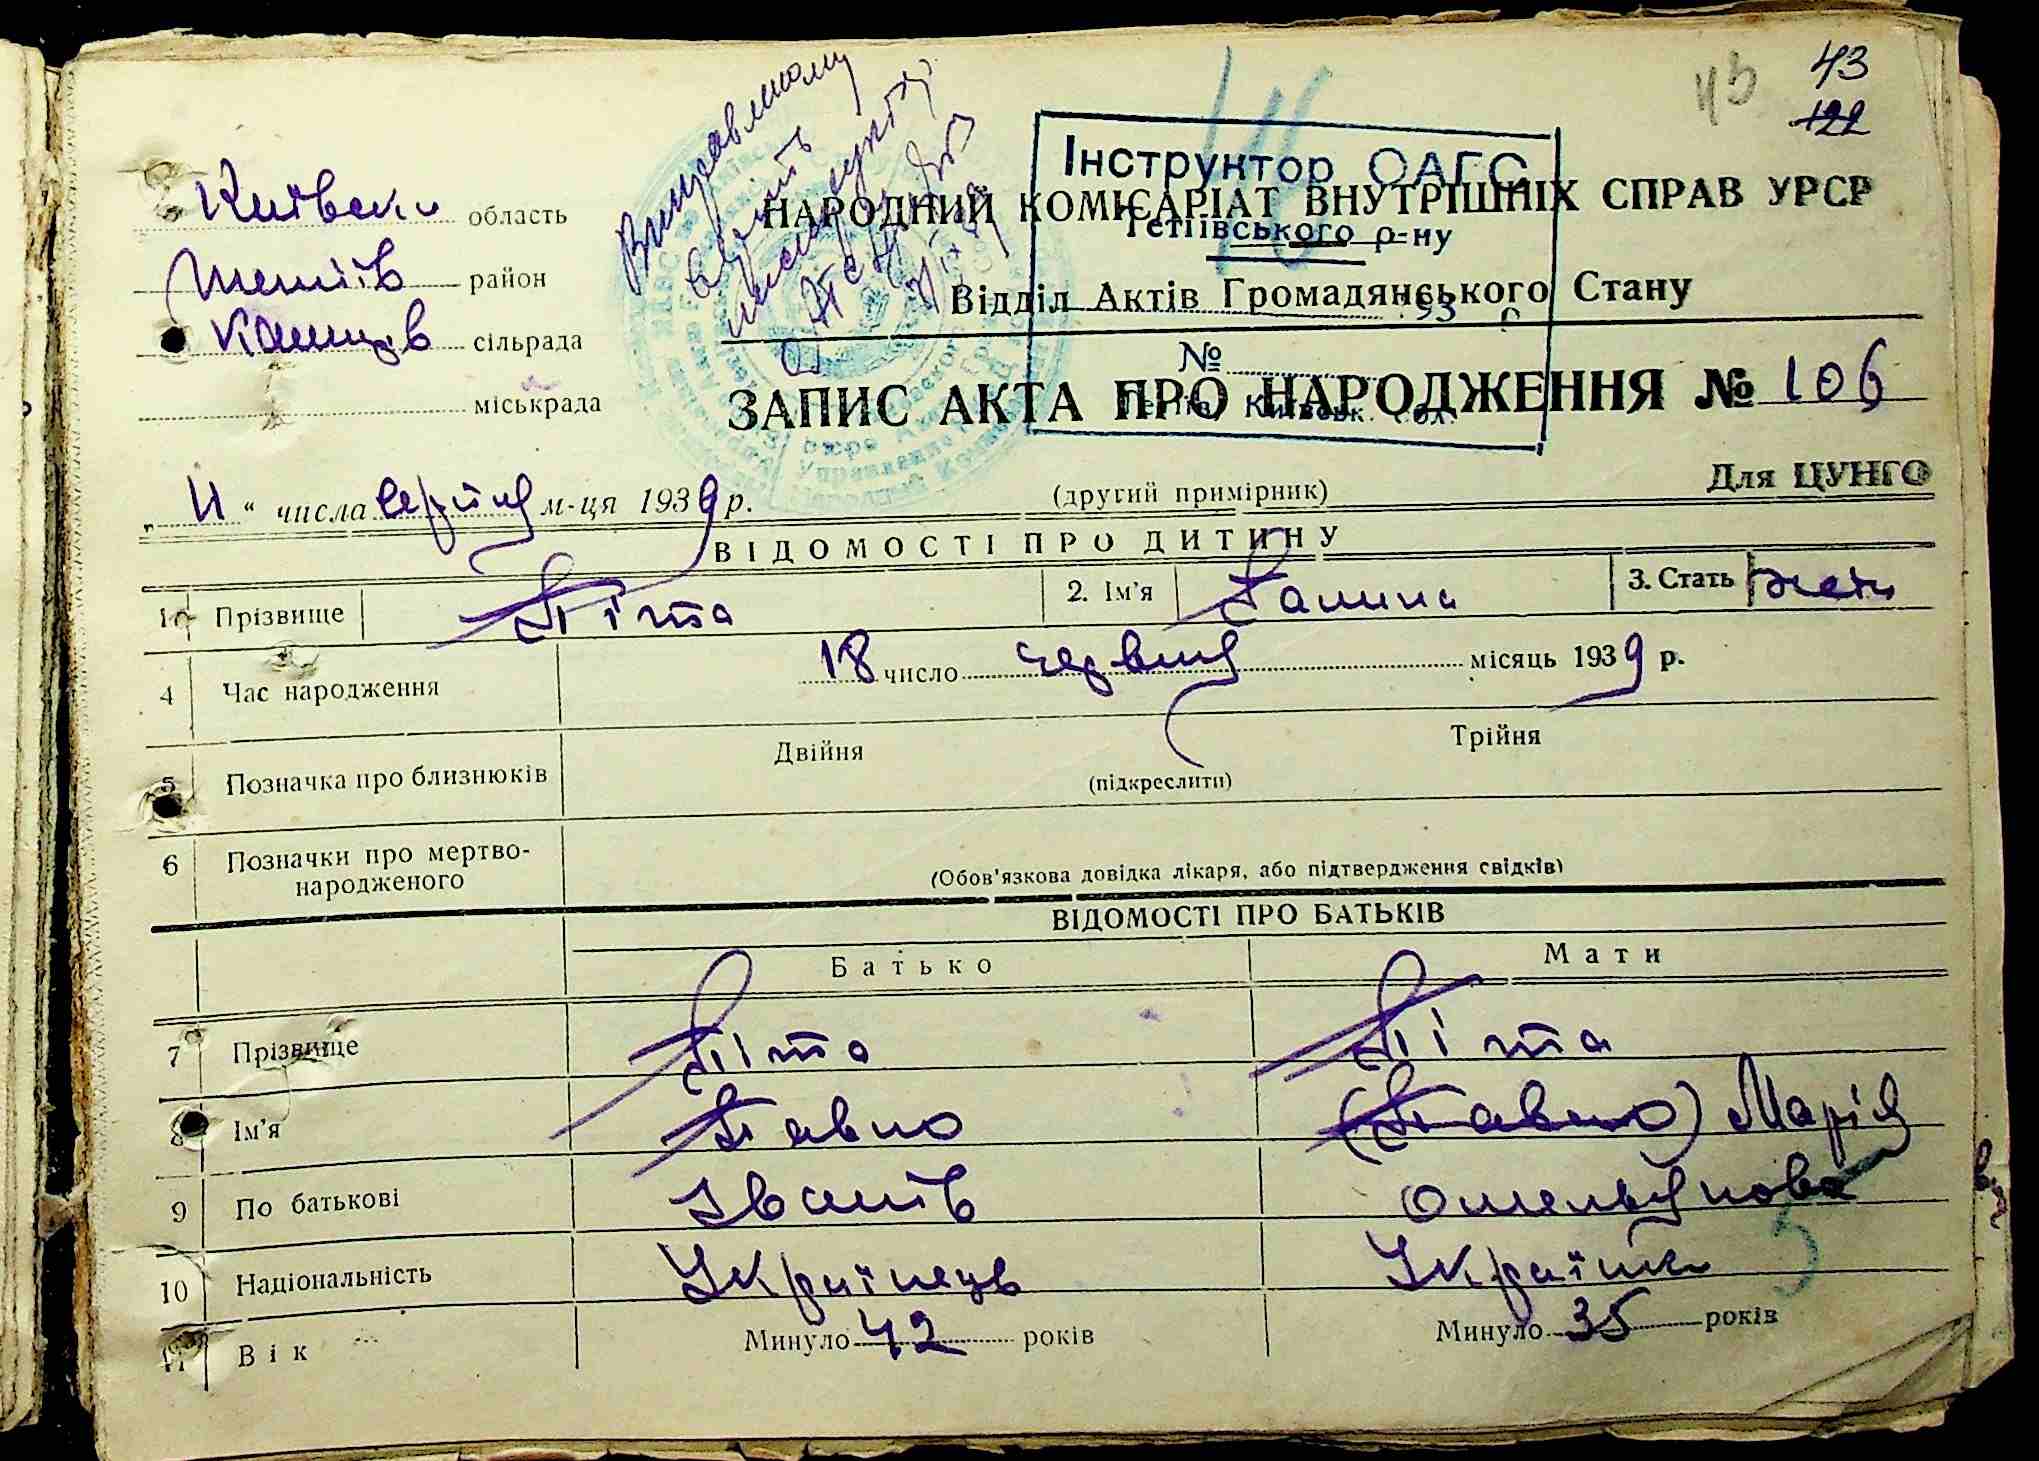 43
43
122
Виправленому
вірить
Інструктор ОАГС
Тетіївського р-ну
193 р.
№
Київськ. обл.
Київськ область
Тетіїв район
Кашпів сільрада
міськрада
НАРОДНИЙ КОМІСАРІАТ ВНУТРІШНІХ СПРАВ УРСР
Відділ Актів Громадянського Стану
ЗАПИС АКТА ПРО НАРОДЖЕННЯ № 106
„ 11 “ числа серпня м-ця 1939 р.
(другий примірник)
Для ЦУНГО
ВІДОМОСТІ ПРО ДИТИНУ
1 Прізвище Піта 2. Ім'я Галина 3. Стать жен
4 Час народження 18 число червня місяць 1939 р.
5 Позначка про близнюків Двійня Трійня
(підкреслити)
6 Позначки про мертво-
народженого
(Обов'язкова довідка лікаря, або підтвердження свідків)
ВІДОМОСТІ ПРО БАТЬКІВ
Батько Мати
7 Прізвище Піта Піта
8 Ім'я Павло (Павло) Марія
9 По батькові Іванів Омелянова
10 Національність Українець Українка
11 Вік Минуло 42 років Минуло 35 років